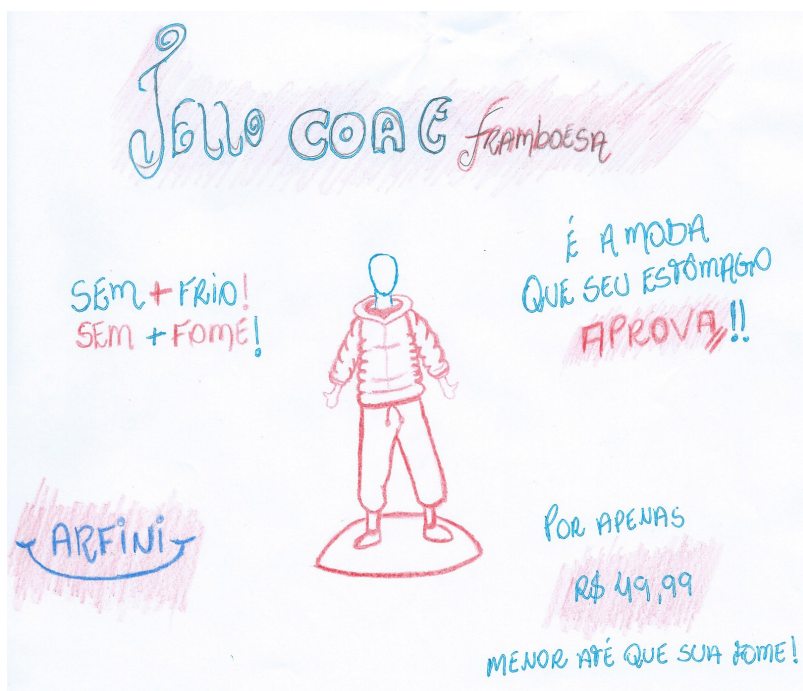 JELLO COAT FRAMBOESA
SEM + FRIO!
SEM + FOME!
É A MODA
QUE SEU ESTÔMAGO
APROVA!!
ARFINI
POR APENAS
R$ 49,99
MENOR ATÉ QUE SUA FOME!